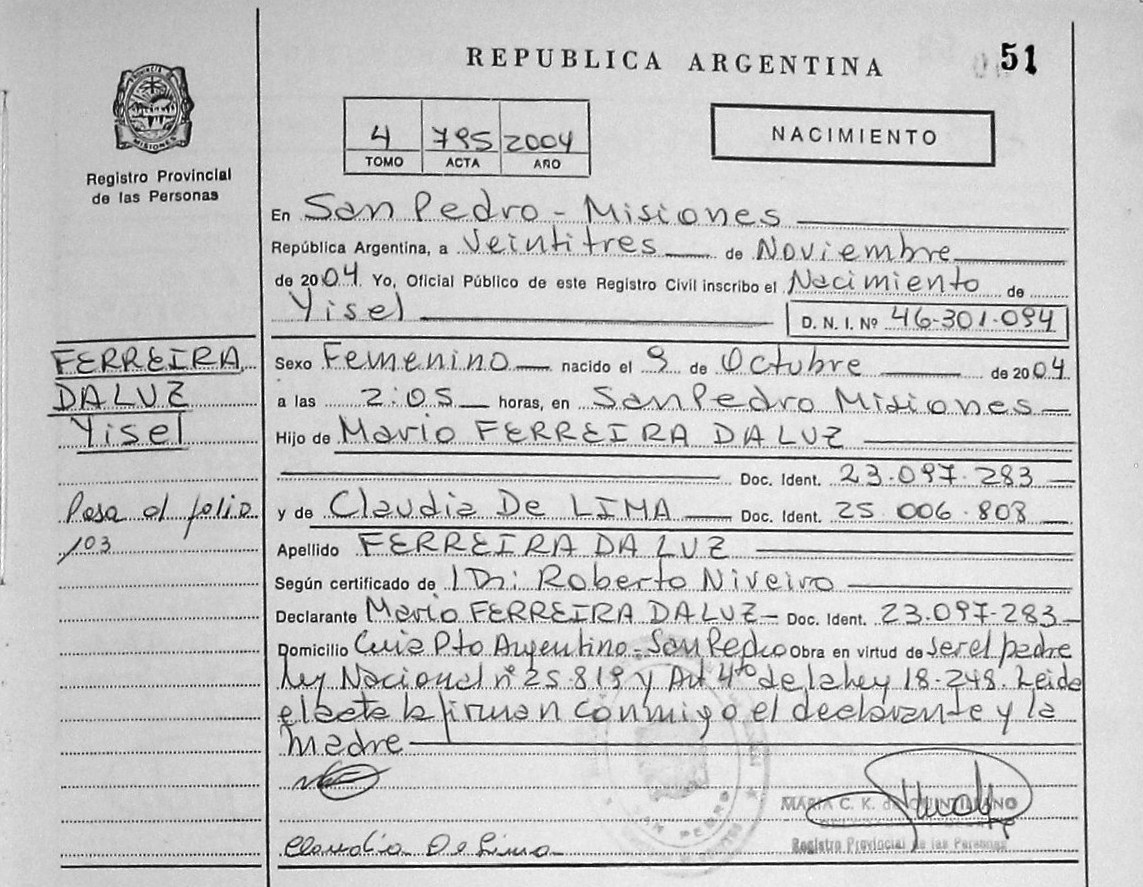 REPUBLICA ARGENTINA
51
MISIONES
Registro Provincial
de las Personas
4 795 2004
TOMO ACTA AÑO
NACIMIENTO
En San Pedro - Misiones
República Argentina, a Veintitres de Noviembre
de 2004. Yo, Oficial Público de este Registro Civil inscribo el Nacimiento de
Yisel
D. N. I. Nº 46-301-094
FERREIRA
DA LUZ
Yisel
Pasa al folio
103
Sexo Femenino nacido el 9 de Octubre de 2004
a las 2:05 horas, en San Pedro Misiones
Hijo de Mario FERREIRA DA LUZ
Doc. Ident. 23.097.283
y de Claudia De LIMA Doc. Ident. 25.006.808
Apellido FERREIRA DA LUZ
Según certificado de Roberto Niveiro
Declarante Mario FERREIRA DA LUZ Doc. Ident. 23.097.283
Domicilio Pto Argentino - San Pedro Obra en virtud de ser el padre
Ley Nacional nº 25.819 y Art 4to de la Ley 18-248. Leida
el acta la firman conmigo el declarante y la
madre
SAN PEDRO
MARIA C. K. de QUINTILIANO
Registro Provincial de las Personas
Claudia De Lima